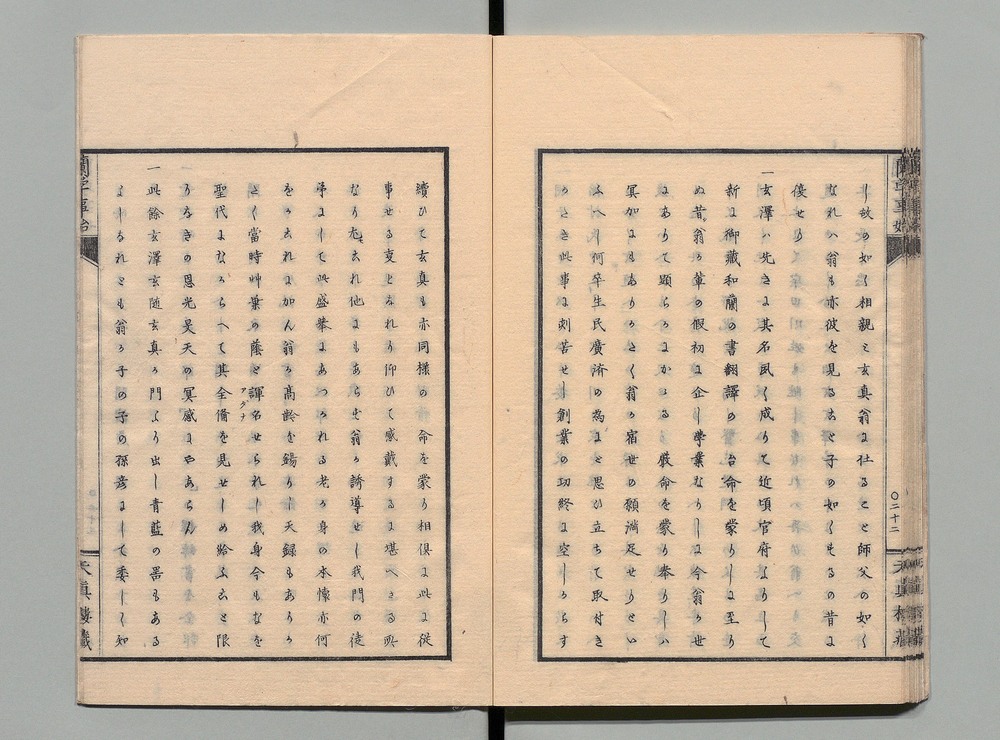 蘭學事始
○二十二
天真樓藏
し故の如く相親ミ玄真翁に仕ること師父の如く
なれハ翁も亦彼を見ること子の如くするの昔に
復せり
一玄澤ハ先きに其名夙く成りて近頃官府よりして
新に御藏和蘭の書翻譯の台命を蒙りしに至り
ぬ昔翁か輩の假初に企し學業なりしに今翁か世
にありて顕らかにかゝる嚴命を蒙り奉りしハ
冥加にもありかたく翁か宿世の願満足せりとい
ふへし何卒生民廣済の為にと思ひ立ちて取付き
かたき此事に刻苦せし創業の功終に空しからす
續ひて玄真も亦同様の 命を蒙り相倶に此に從
事せる変となれり仰ひて感戴するに堪へさる所
なり尤これ他にもあらす翁か誘導せし我門の徒
弟にして此盛擧にあつかれる老か身の本懐亦何
をかこれに加ん翁か高齢を錫りし天録もありか
たく當時艸葉の蔭と諢名アダナせられし我身今もなを
聖代になからへて其全備を見せしめ給ふこと限
りなきの恩光昊天の冥感にやあらん
一此餘玄澤玄随玄真か門より出し青藍の器もある
よしなれとも翁か子の子の孫彦にして委しく知
蘭學事始
天真樓藏